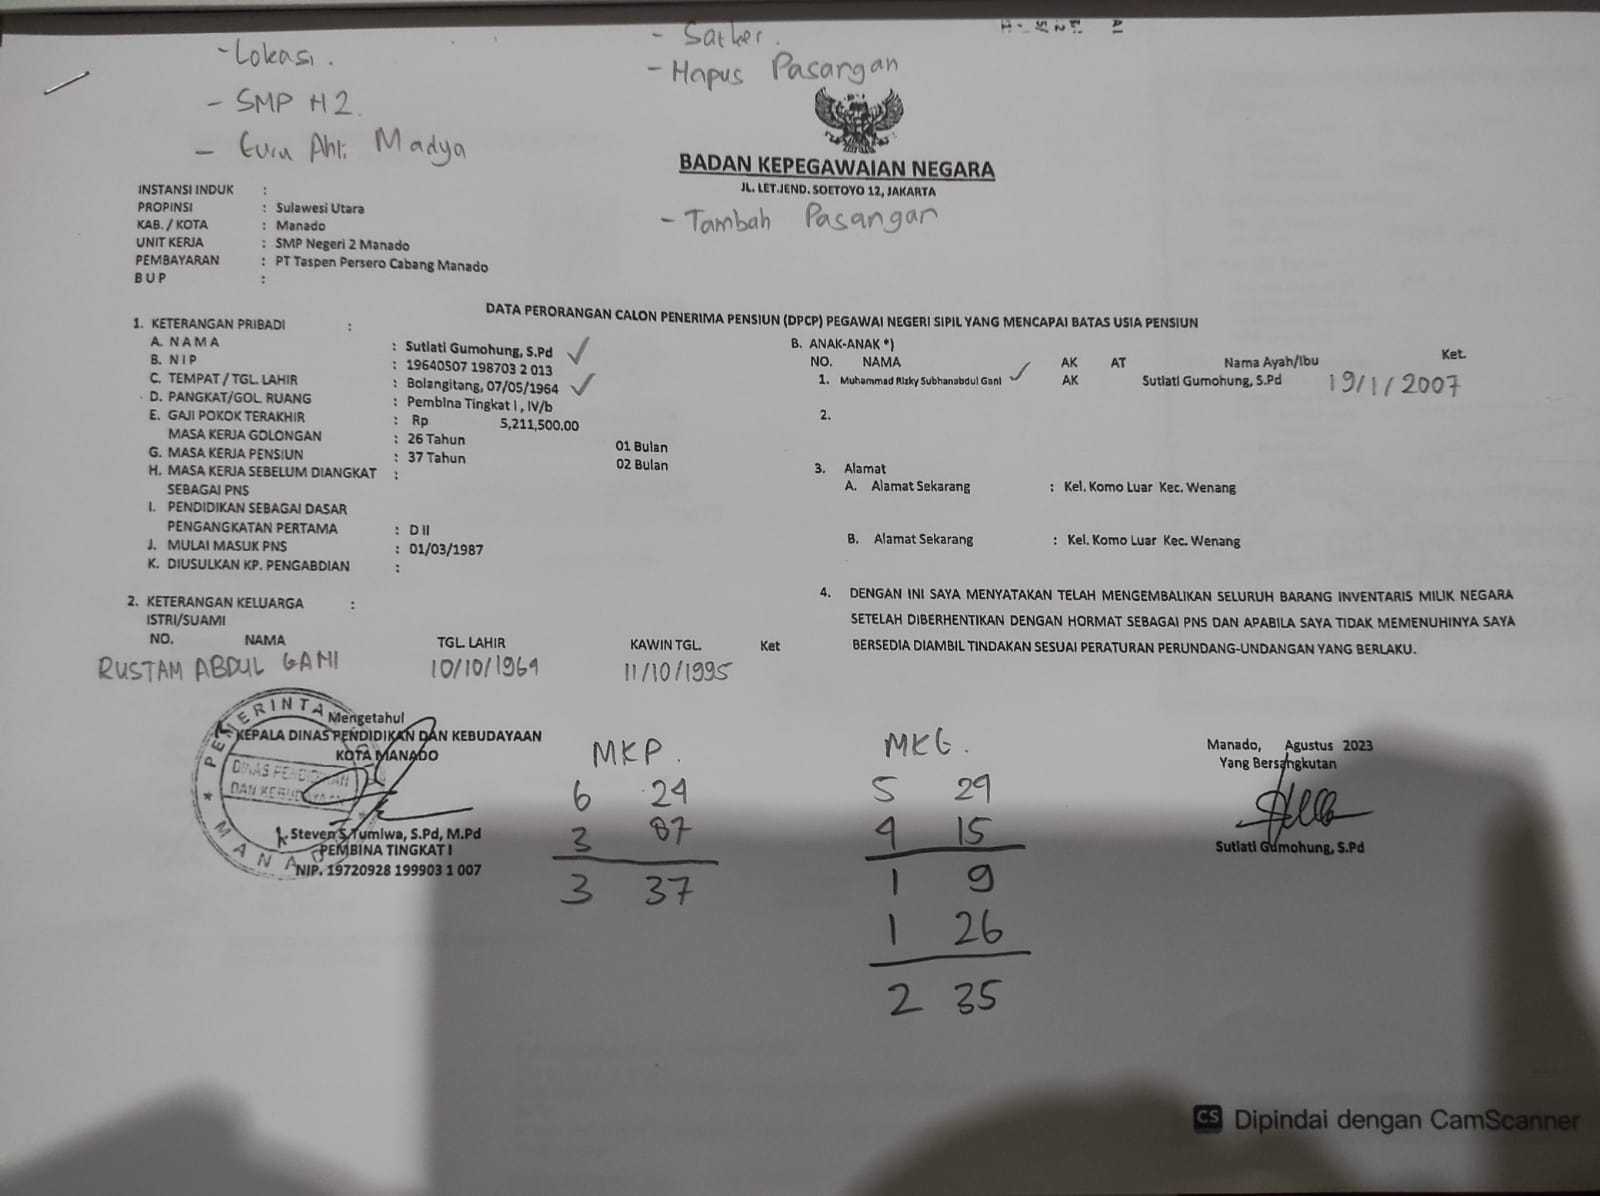 - Lokasi.
- SMP N 2.
- Guru Ahli Madya
- Satker.
- Hapus Pasangan
BADAN KEPEGAWAIAN NEGARA
JL. LET.JEND. SOETOYO 12, JAKARTA
- Tambah Pasangan
INSTANSI INDUK :
PROPINSI : Sulawesi Utara
KAB. / KOTA : Manado
UNIT KERJA : SMP Negeri 2 Manado
PEMBAYARAN : PT Taspen Persero Cabang Manado
B U P :
DATA PERORANGAN CALON PENERIMA PENSIUN (DPCP) PEGAWAI NEGERI SIPIL YANG MENCAPAI BATAS USIA PENSIUN
1. KETERANGAN PRIBADI :
A. N A M A : Sutiati Gumohung, S.Pd
B. N I P : 19640507 198703 2 013
C. TEMPAT / TGL. LAHIR : Bolangitang, 07/05/1964
D. PANGKAT/GOL. RUANG : Pembina Tingkat I , IV/b
E. GAJI POKOK TERAKHIR : Rp 5,211,500.00
MASA KERJA GOLONGAN : 26 Tahun 01 Bulan
G. MASA KERJA PENSIUN : 37 Tahun 02 Bulan
H. MASA KERJA SEBELUM DIANGKAT :
SEBAGAI PNS
I. PENDIDIKAN SEBAGAI DASAR
PENGANGKATAN PERTAMA : D II
J. MULAI MASUK PNS : 01/03/1987
K. DIUSULKAN KP. PENGABDIAN :
2. KETERANGAN KELUARGA :
ISTRI/SUAMI
NO. NAMA TGL. LAHIR KAWIN TGL. Ket
RUSTAM ABDUL GANI 10/10/1969 11/10/1995
B. ANAK-ANAK *)
NO. NAMA AK AT Nama Ayah/Ibu Ket.
1. Muhammad Rizky Subhanabdul Gani AK Sutiati Gumohung, S.Pd 19/1/2007
2.
3. Alamat
A. Alamat Sekarang : Kel. Komo Luar Kec. Wenang
B. Alamat Sekarang : Kel. Komo Luar Kec. Wenang
4. DENGAN INI SAYA MENYATAKAN TELAH MENGEMBALIKAN SELURUH BARANG INVENTARIS MILIK NEGARA
SETELAH DIBERHENTIKAN DENGAN HORMAT SEBAGAI PNS DAN APABILA SAYA TIDAK MEMENUHINYA SAYA
BERSEDIA DIAMBIL TINDAKAN SESUAI PERATURAN PERUNDANG-UNDANGAN YANG BERLAKU.
Mengetahui
KEPALA DINAS PENDIDIKAN DAN KEBUDAYAAN
KOTA MANADO
PEMERINTA
DINAS PENDIDIKAN
DAN KEBUDAYAAN
MANADO
Steven S Tumiwa, S.Pd, M.Pd
PEMBINA TINGKAT I
NIP. 19720928 199903 1 007
MKP.
6 24
3 87
3 37
MKG.
5 29
4 15
1 9
1 26
2 35
Manado, Agustus 2023
Yang Bersangkutan
Sutiati Gumohung, S.Pd
CS Dipindai dengan CamScanner